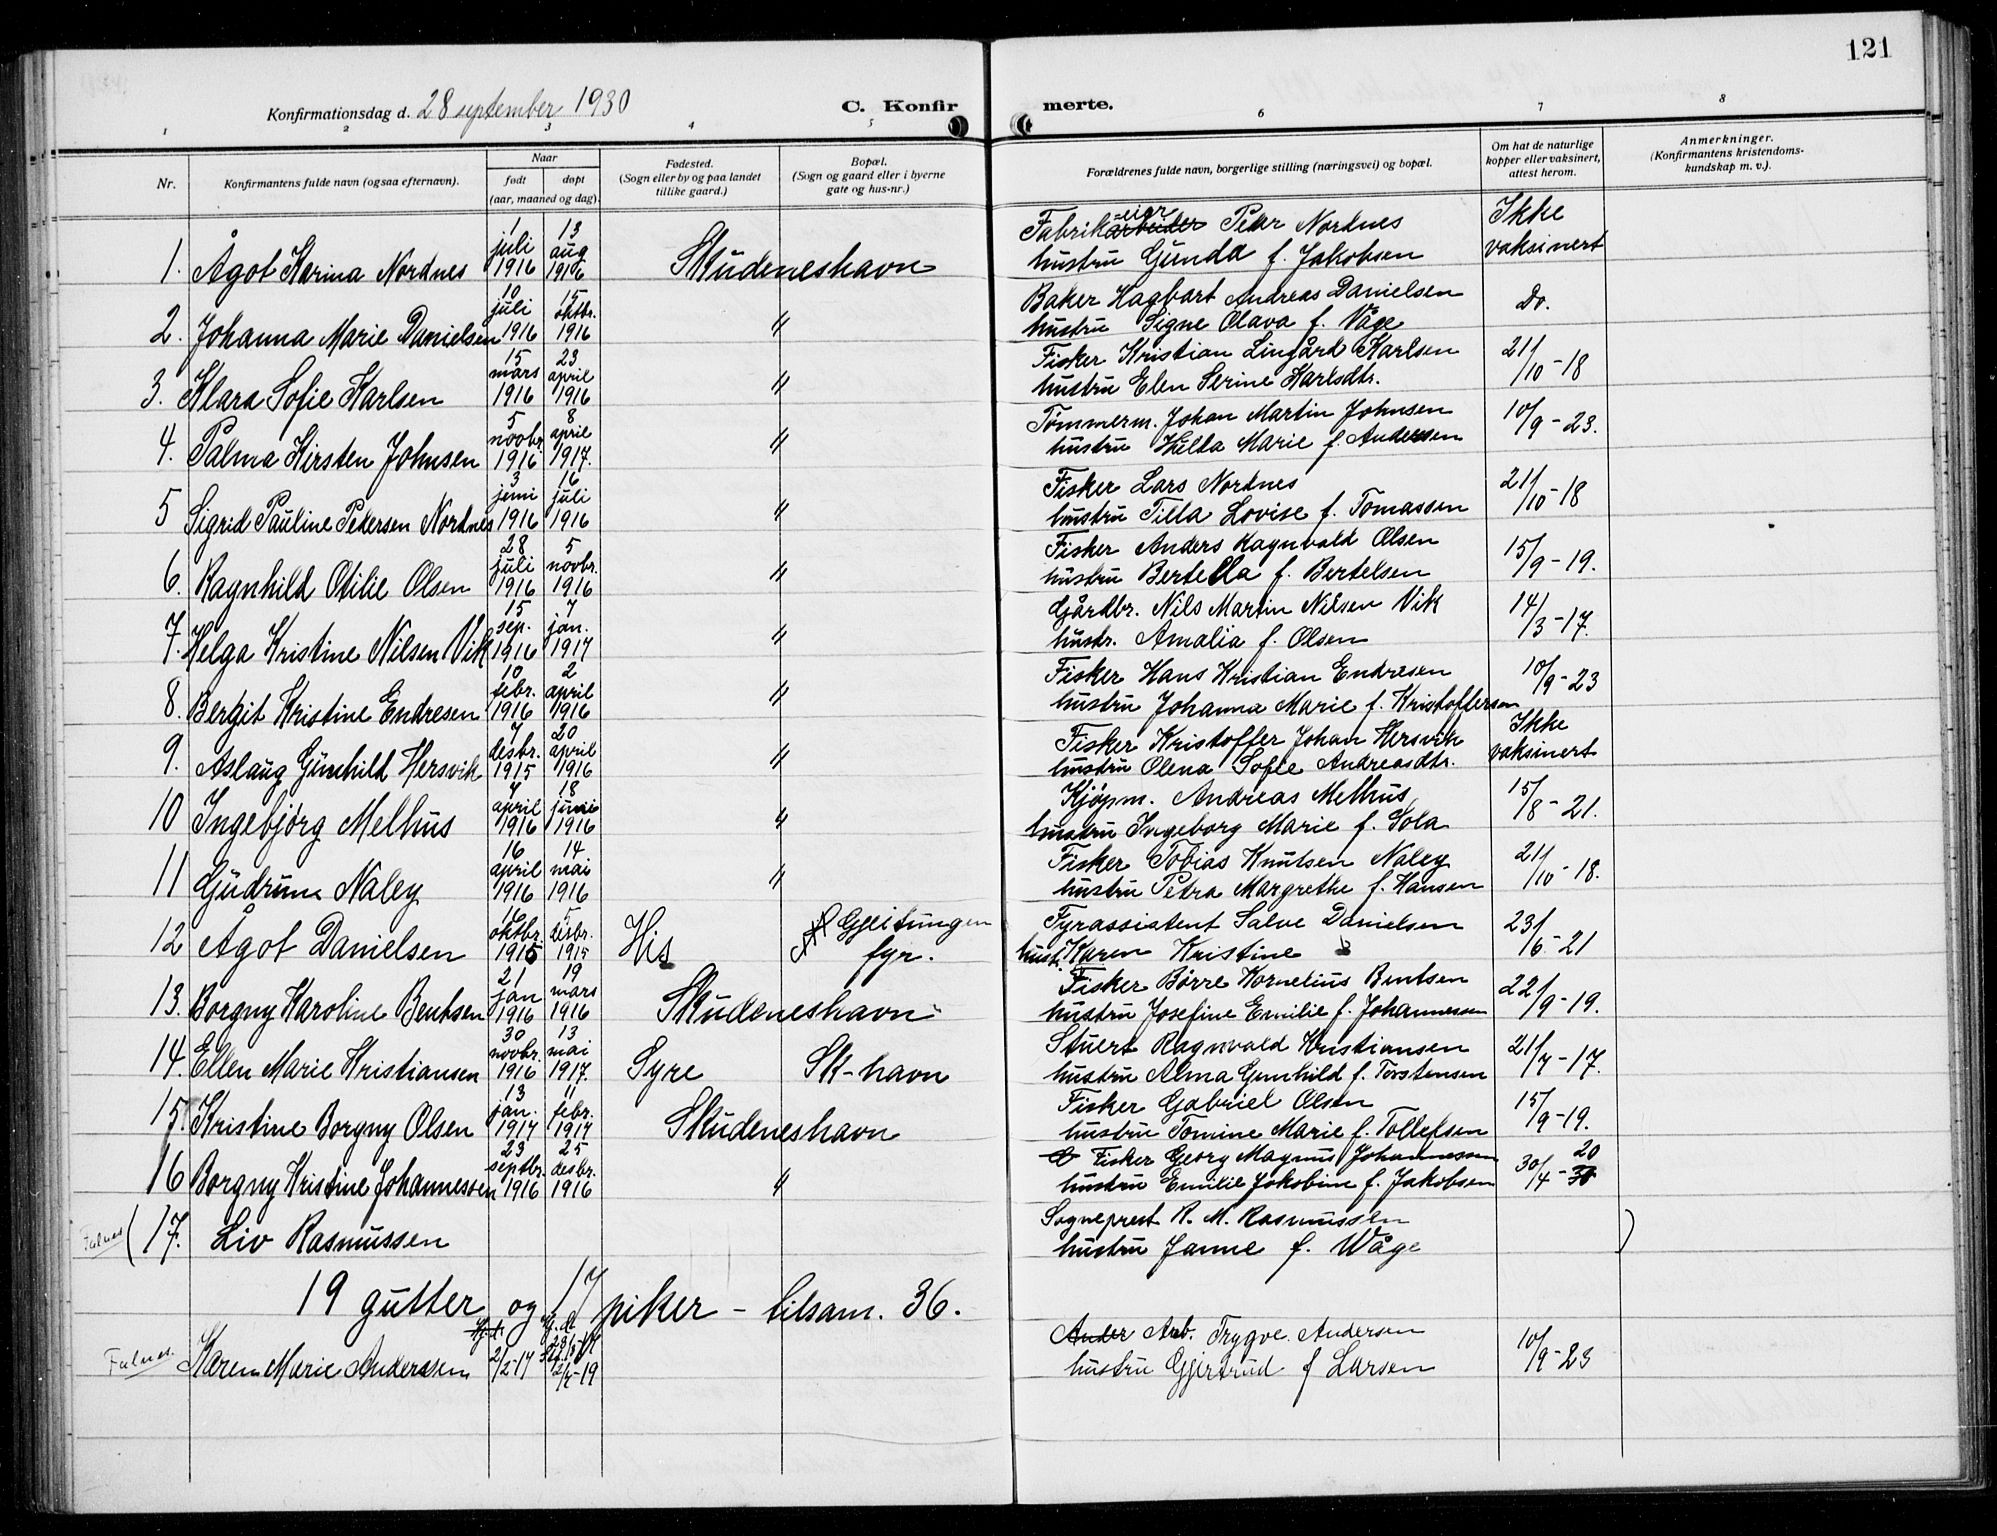 121
Konfirmationsdag d. 28 september 1930
C. Konfirmerte.
1 2 3 4 5 6 7 8
Nr.
Konfirmantens fulde navn (ogsaa efternavn).
Naar
født døpt
(aar, maaned og dag).
Fødested.
(Sogn eller by og paa landet
tillike gaard.)
Bopæl.
(Sogn og gaard eller i byerne
gate og hus-nr.)
Forældrenes fulde navn, borgerlige stilling (næringsvei) og bopæl.
Om hat de naturlige
kopper eller vaksinert,
attest herom.
Anmerkninger.
(Konfirmantens kristendoms-
kundskap m. v.).
1. Ågot Karina Nordnes 1 juli 1916 13 aug 1916 Skudeneshavn Fabrikarbeider eier Peder Nordnes Ikke
hustru Gunda f. Jakobsen vaksinert
2. Johanna Marie Danielsen 10 juli 1916 15 oktbr. 1916 " Baker Hagbart Andreas Danielsen Do.
hustru Signe Olava f. Våge
3. Klara Sofie Karlsen 15 mars 1916 23 april 1916 " Fisker Kristian Lingård Karlsen 21/10-18
hustru Elen Serine Karlsdtr.
4. Palma Kirsten Johnsen 5 novbr 1916 8 april 1917. " Tømmerm. Johan Martin Johnsen 10/9-23.
hustru Hilla Marie f. Andersen
5 Sigrid Pauline Pedersen Nordnes 3 juni 1916 16 juli 1916 " Fisker Lars Nordnes 21/10-18
hustru Tilla Lovise f. Tomassen
6. Ragnhild Otilie Olsen 28 juli 1916 5 novbr. 1916 " Fisker Anders Ragnvald Olsen 15/9-19.
hustru Bertella f. Bertelsen
7. Helga Kristine Nilsen Vik 15 sep. 1916 7 jan. 1917 " Gårdbr. Nils Martin Nilsen Vik 14/3-17.
hustr. Amalia f. Olsen
8. Bergit Kristine Endresen 10 febr. 1916 2 april 1916 " Fisker Hans Kristian Endresen 10/9-23
hustru Johanna Marie f. Kristoffersen
9. Aslaug Gunhild Hersvik 7 desbr. 1915 20 april 1916 " Fisker Kristoffer Johan Hersvik Ikke
hustru Olena Sofie Andreasdtr. vaksinert
10 Ingebjørg Melhus 4 april 1916 18 juni 1916 " Kjøpm. Andreas Melhus 15/8-21.
hustru Ingeborg Marie f. Sola
11 Gudrun Naley 16 april 1916 14 mai 1916 " Fisker Tobias Knutsen Naley 21/10-18.
hustru Petra Margrethe f. Hansen
12 Ågot Danielsen oktbr. 1915 5 desbr. 1915 His Gjeitungen fyr. Fyrassistent Salve Danielsen 23/6-21
hust. Karen Kristine
13. Borgny Karoline Bentsen 21 jan 1916 19 mars 1916 Skudeneshavn Fisker Børre Kornelius Bentsen 22/9-19.
hustru Josefine Emilie f. Johannessen
14. Ellen Marie Kristiansen 30 novbr. 1916 13 mai 1917. Syre Sk-havn Stuert Ragnvald Kristiansen 21/7-17.
hustru Alma Gunhild f. Torstensen
15. Kristine Borgny Olsen 13 jan. 1917 11 febr. 1917 Skudeneshavn Fisker Gabriel Olsen 15/9-19.
hustru Tomine Marie f. Tollefsen
16 Borgny Kristine Johannessen 23 septbr. 1916 25 desbr. 1916 " Fisker Georg Magnus Johannessen 30/4-20
hustru Emilie Jakobine f. Jakobsen
Falnes (17. Liv Rasmussen Sogneprest R. M. Rasmussen )
hustru Janne f. Wåge
19 gutter og 17 piker - tilsam. 36.
Falnes. Karen Marie Anderssen 2/2-17 Ander Arb. Trygve Andersen 10/9-23
hustru Gjertrud f Larsen